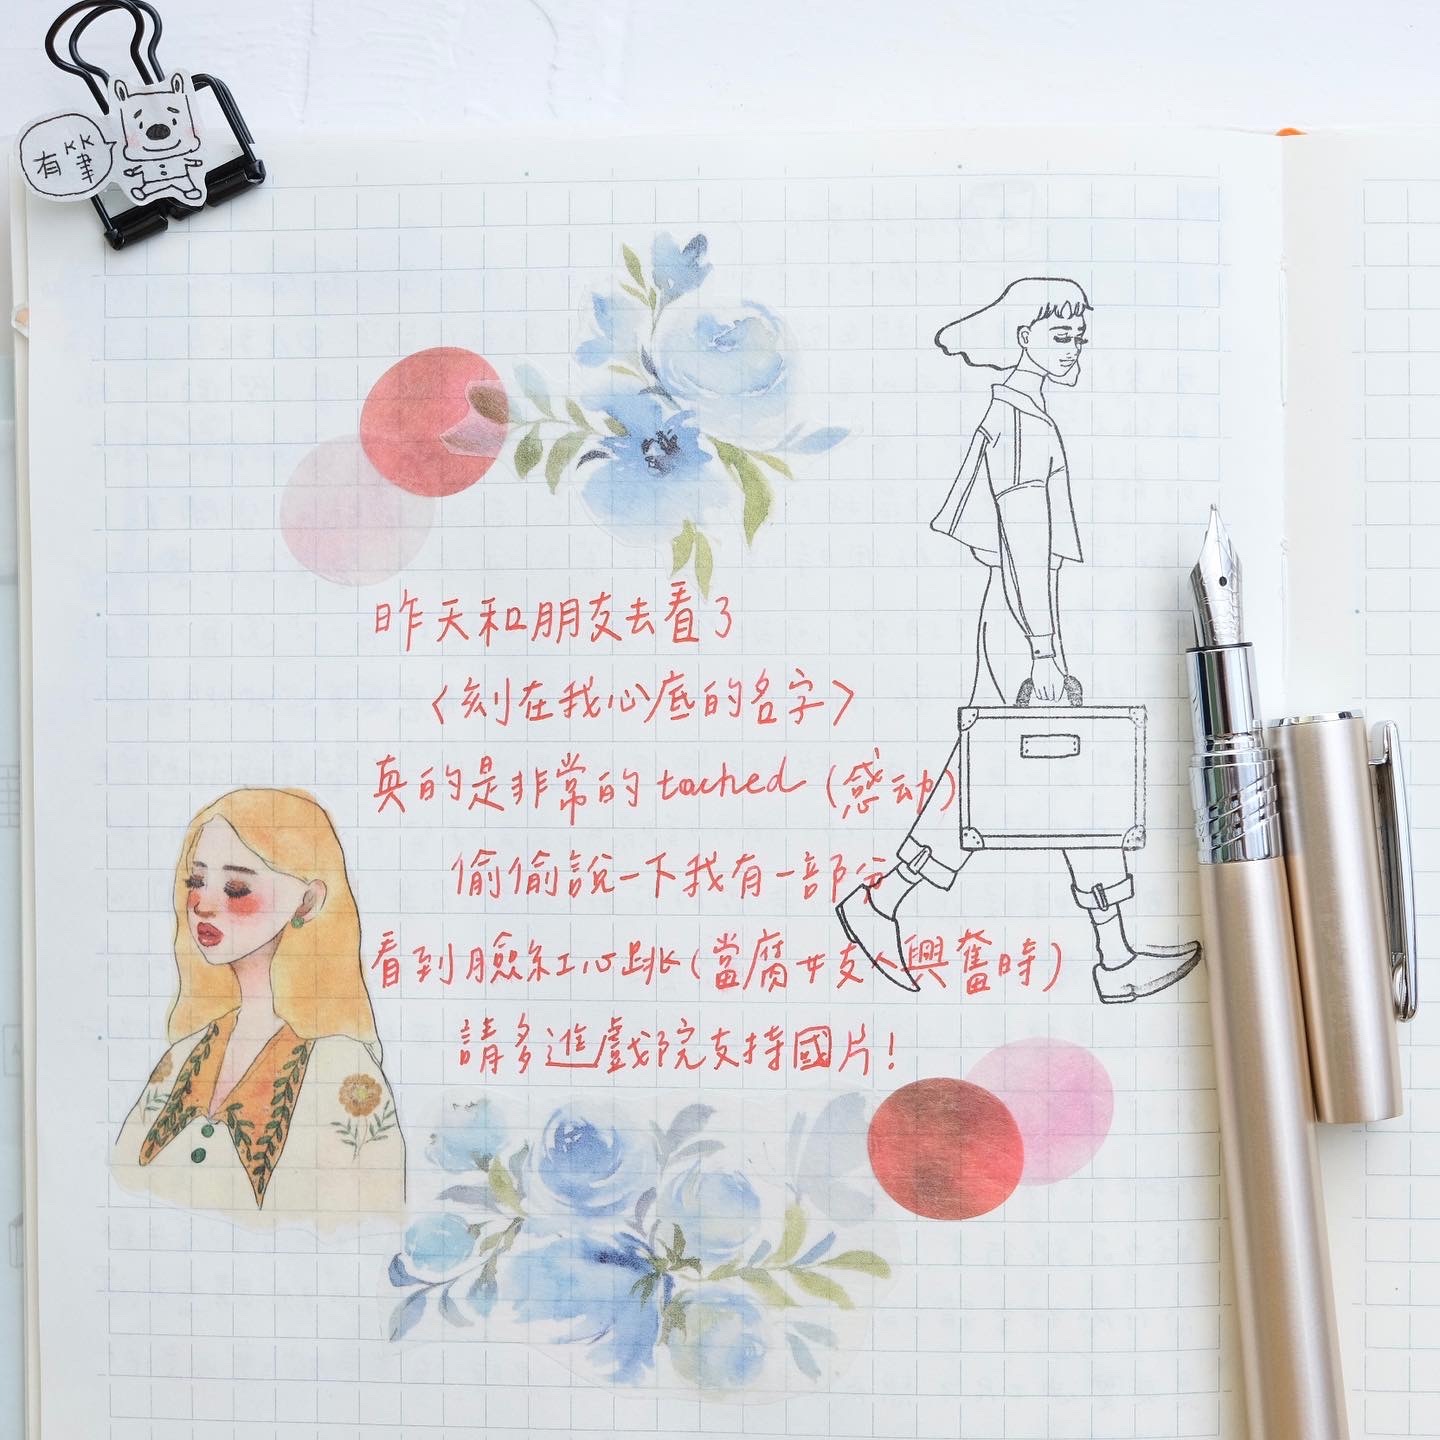 有筆
昨天和朋友去看了
〈刻在我心底的名字〉
真的是非常的 tached (感动)
偷偷說一下我有一部分
看到臉紅心跳(當腐女友人興奮時)
請多進戲院支持國片!